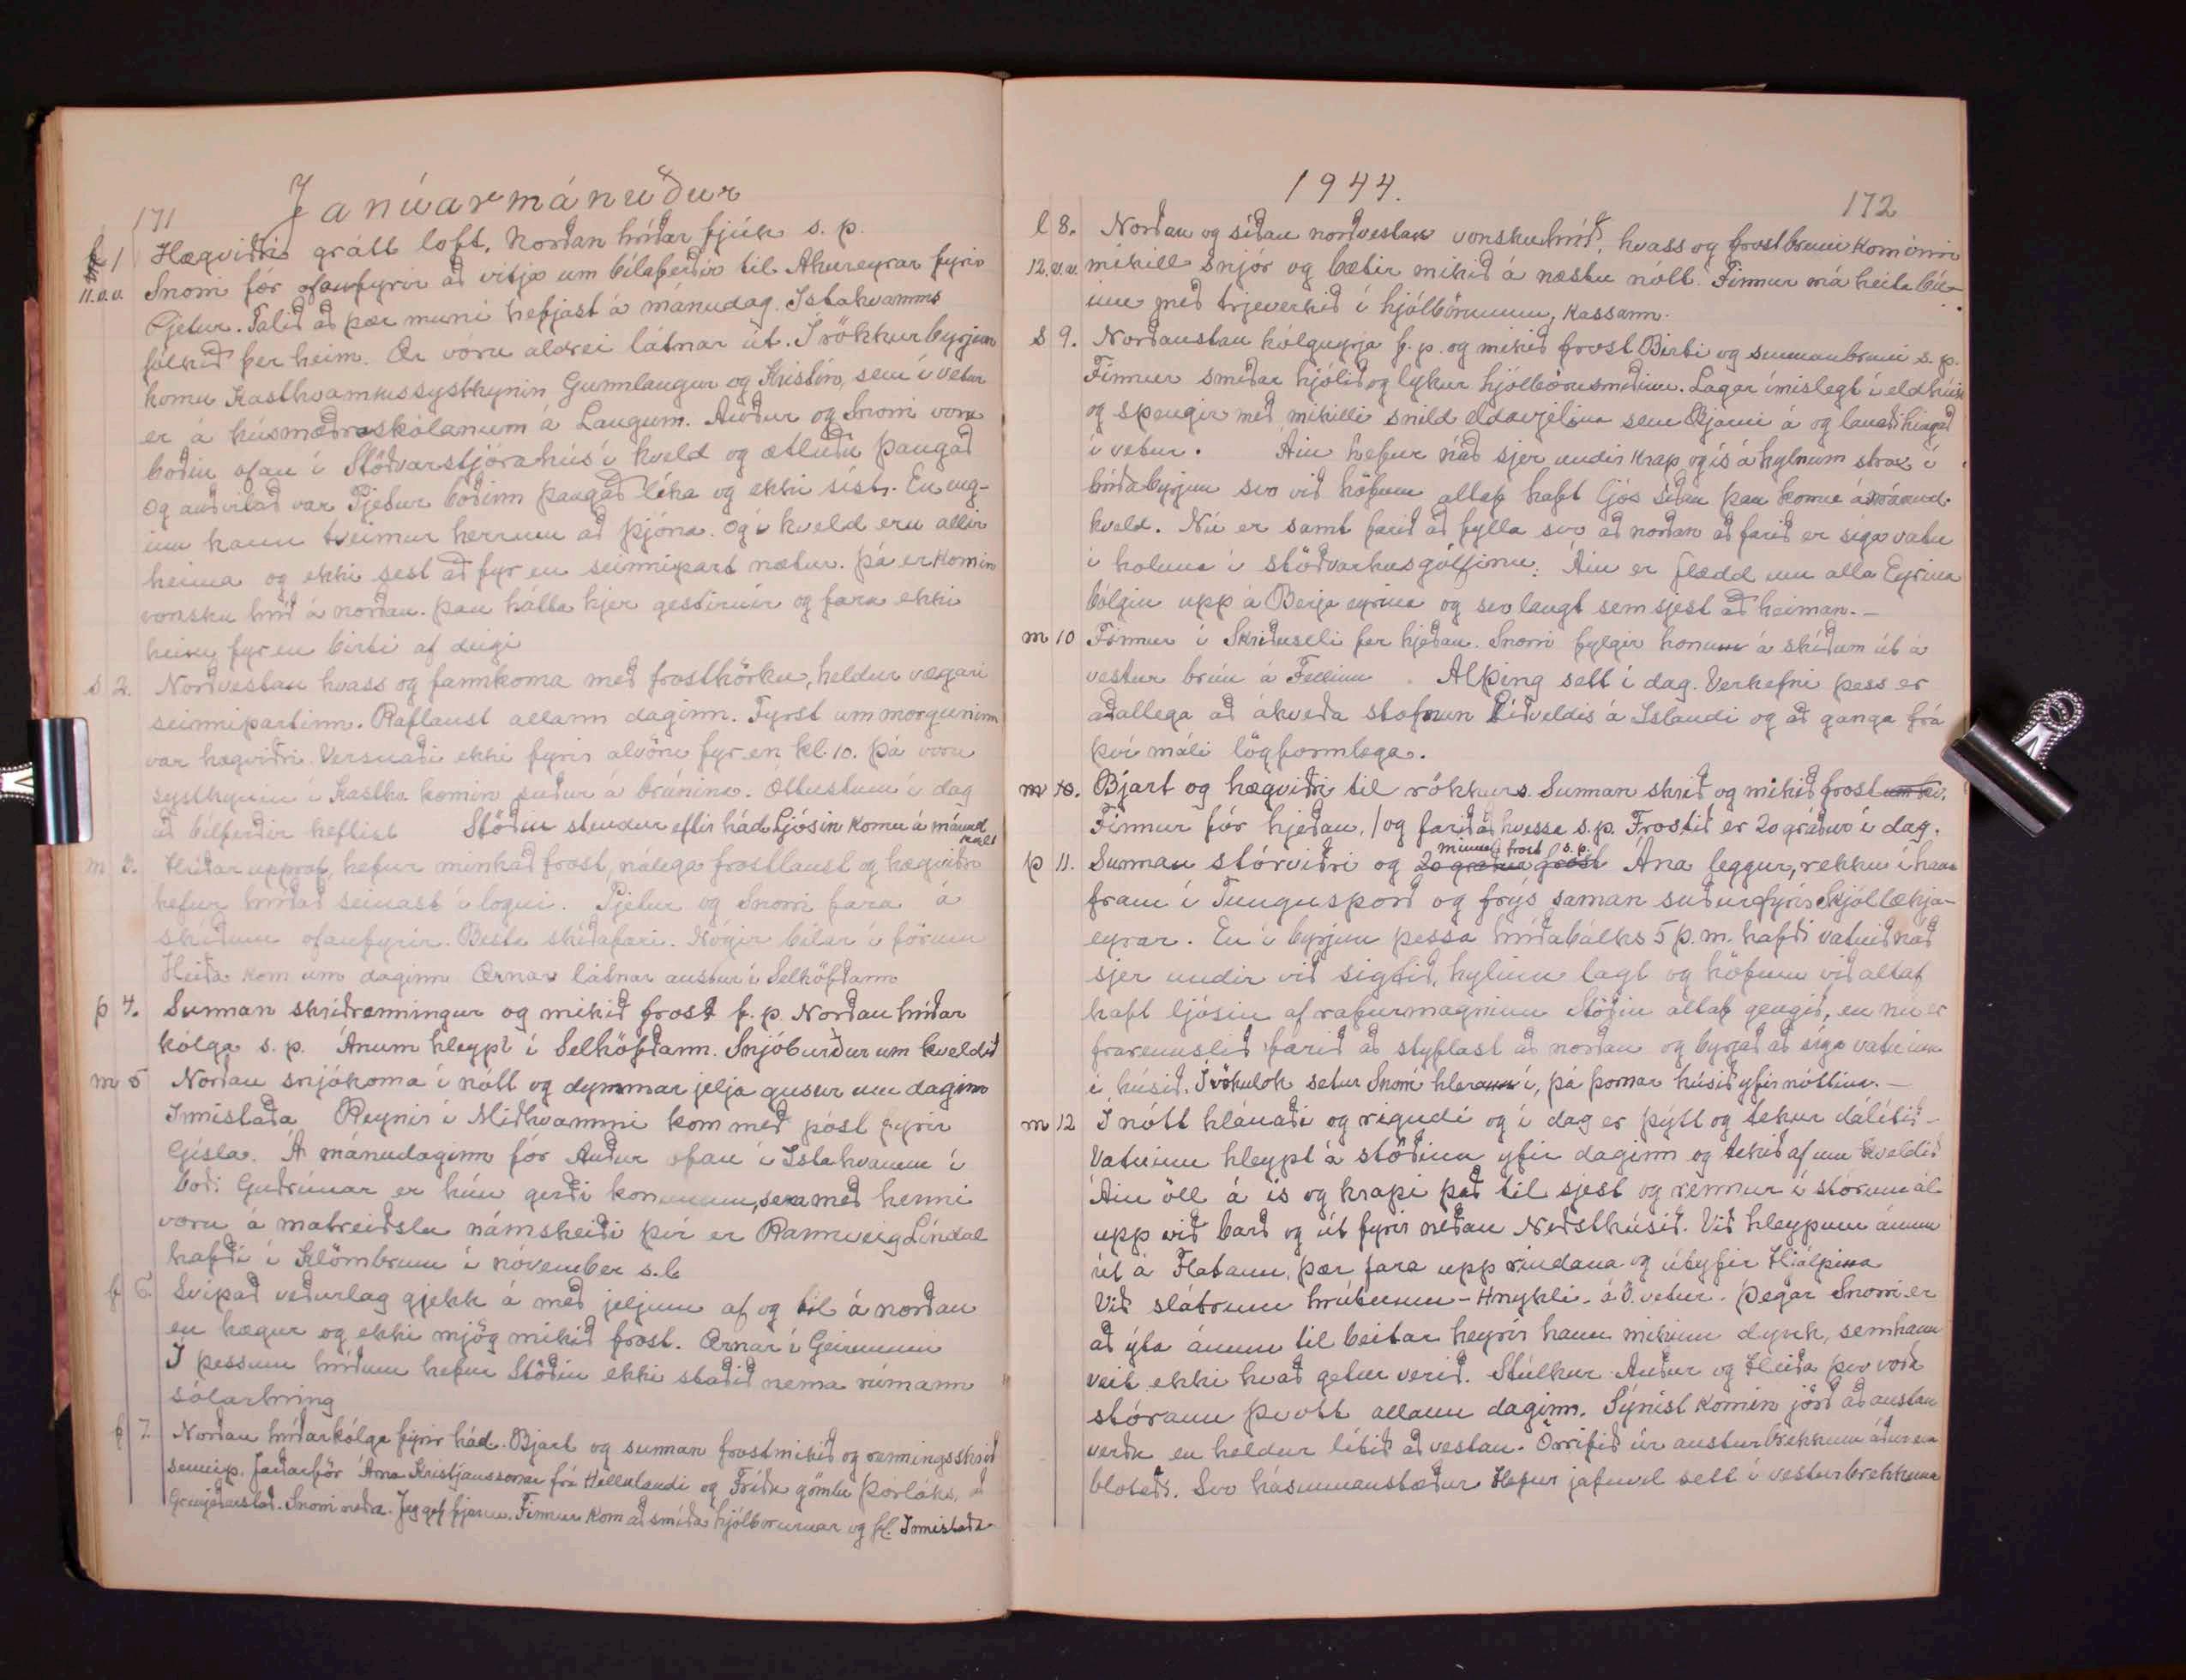 171 Janúarmánuður
l 1 Hægviðri grátt loft. Norðan hríðar fjúk s. p.
11.v.v. Snorri fór ofanfyrir að vitja um bílaferðir til Akureyrar fyrir
Pjetur. Talið að þær muni hefjast á mánudag. Ístahvamms
fólkið fer heim. Ær vóru aldrei látnar út. Í rökkurbyrjun
komu Kasthvammssystkynin, Gunnlaugur og Kristín, sem í vetur
er á húsmæðraskólanum á Laugum. Auður og Snorri voru
boðin ofan í Stöðvarstjórahús í kveld og ætluðu þangað
Og auðvitað var Pjetur boðinn þangað líka og ekki síst. En eng-
inn kann tveimur herrum að þjóna. Og í kveld eru allir
heima og ekki sest að fyr en seinnipart nætur. Þá er komin
vonsku hríð á norðan. Þau hátta hjer gestirnir og fara ekki
heim fyr en birti af degi
s 2. Norðvestan hvass og fannkoma með frosthörku, heldur vægari
seinnipartinn. Raflaust allann daginn. Fyrst um morguninn
var hægviðri. Versnaði ekki fyrir alvöru fyr en kl. 10. Þá voru
systkynin í Kasthv. komin suður á brúnina. Óttustum í dag
að bílferðir heftist Stöðin stendur eftir hád Ljósin komu á mánud
kveld
m 3. Hríðar upprof, hefur minkað frost, nálega frostlaust og hægviðri
hefur hríðað seinast í logni. Pjetur og Snorri fara á
skíðum ofanfyrir. Besta skíðafæri. Nógir bílar í förum
Heiða kom um daginn Ærnar látnar austur í Selhöfðann
þ 4. Sunnan skriðrenningur og mikið frost f. p. Norðan hríðar
kólga s. p. Ánum hleypt í Selhöfðann. Snjóburður um kveldið
m 5 Norðan snjókoma í nótt og dymmar jelja gusur um daginn
Innistaða Reynir í Miðhvammi kom með póst fyrir
Gísla. Á mánudaginn fór Auður ofan í Ístahvamm í
boði Guðrúnar er hún gerði konunum, sem með henni
voru á matreiðslu námsheiði því er Rannveig Líndal
hafði í Klömbrum í nóvember s.l.
f 6. Svipað veðurlag gjekk á með jeljum af og til á norðan
en hægur og ekki mjög mikið frost. Ærnar í Geirunum
Í þessum hríðum hefur Stöðin ekki staðið nema rúmann
sólarhring
f 7. Norðan hríðarkólga fyrir hád. Bjart og sunnan frost mikið og rennings skrið
seinnip. Jarðarför Árna Kristjánssonar frá Hellulandi og Fríðu gömlu Þorláks, á
Grenjaðarstað. Snorri reið. Jeg gef fjárnu. Finnur kom að smíða hjólbörurnar og fl. Innistaða
1944. 172
l 8. Norðan og síðan norðvestan vonskuhríð, hvass og frostbruni Kominn
12.v.v. mikill snjór og bætir mikið á næstu nótt. Finnur má heita bú-
inn með trjeverkið í hjólbörunum, Kassann.
s 9. Norðaustan kólguyrja f. p. og mikið frost Birti og sunnanbruni s. p.
Finnur smíðar hjólið og lykur hjólbörusmíðinni. Lagar ímislegt í eldhúsi
og spengir með mikilli snild eldavjelina sem Bjarni á og lánaði hingað
í vetur. Áin hefur náð sjer undir Krap og ís á hylnum strax í
hríðabyrjun svo við höfum altaf haft ljós síðan þau komu á mánud.
kveld. Nú er samt farið að fylla svo að norðan að farið er síga vatn
í holuna í stöðvarhúsgólfinu. Áin er flædd um alla Eyrina
bólgin upp á Berja eyrina og svo langt sem sjest að heiman. –
m 10 Finnur í Skriðuseli fer hjeðan. Snorri fylgir honum á skíðum út á
vestur brún á Fellinu. Alþing sett í dag. Verkefni þess er
aðallega að ákveða stofnun Líðveldis á Íslandi og að ganga frá
því máli lögformlega.
m 10. Bjart og hægviðri til rökkurs. Sunnan skrið og mikið frost um kv.
Finnur fór hjeðan, / og farið að hvessa s. p. Frostið er 20 gráður í dag.
minna frost s. p.
þ 11. Sunnan stórviðri og 20 graðu frost Ána leggur, rekku í hana
fram í Tungusporð og frýs saman suðurfyrir Skjóllækja-
eyrar. En í byrjun þessa hríðabálks 5 þ. m. hafði vatnið náð
sjer undir við sigtið, hylinn lagt og höfum við altaf
haft ljósin af rafurmagninu Stöðin altaf gengið, en nú er
frárennslið farið að styflast að norðan og byrjað að síga vatn inn
í húsið. Í vökulok setur Snorri hlerann í, þá þornar húsið yfir nóttina. –
m 12 Í nótt hlánaði og rigndi og í dag er þýtt og tekur dálítið –
Vatninu hleypt á stöðina yfir daginn og tekið af um kveldið
Áin öll á ís og krapi það til sjest og rennur í stórum ál
upp við barð og út fyrir neðan Neðsthúsið. Við hleypum ánum
út á Flatann, þær fara upp rindana og útyfir Hjálpina
Við slátrum hrútunum – Hnykli – á Ö. vetur. Þegar Snorri er
að ýta ánum til beitar heyrir hann mikinn dynk, sem hann
veit ekki hvað getur verið. Stúlkur Auður og Heiða þvo voða
stórann þvott allann daginn. Sýnist komin jörð að austan
verðu en heldur lítið að vestan. Örrifið úr austurbrekkum áður en
blotaði. Svo hásunnanstæður Hefur jafnvel sett í vesturbrekkuna